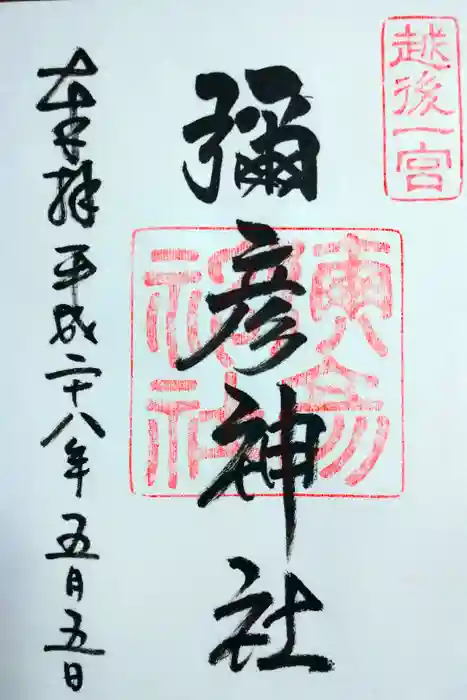 越後一宮
彌彦神社
奉拝 平成二十八年 五月五日